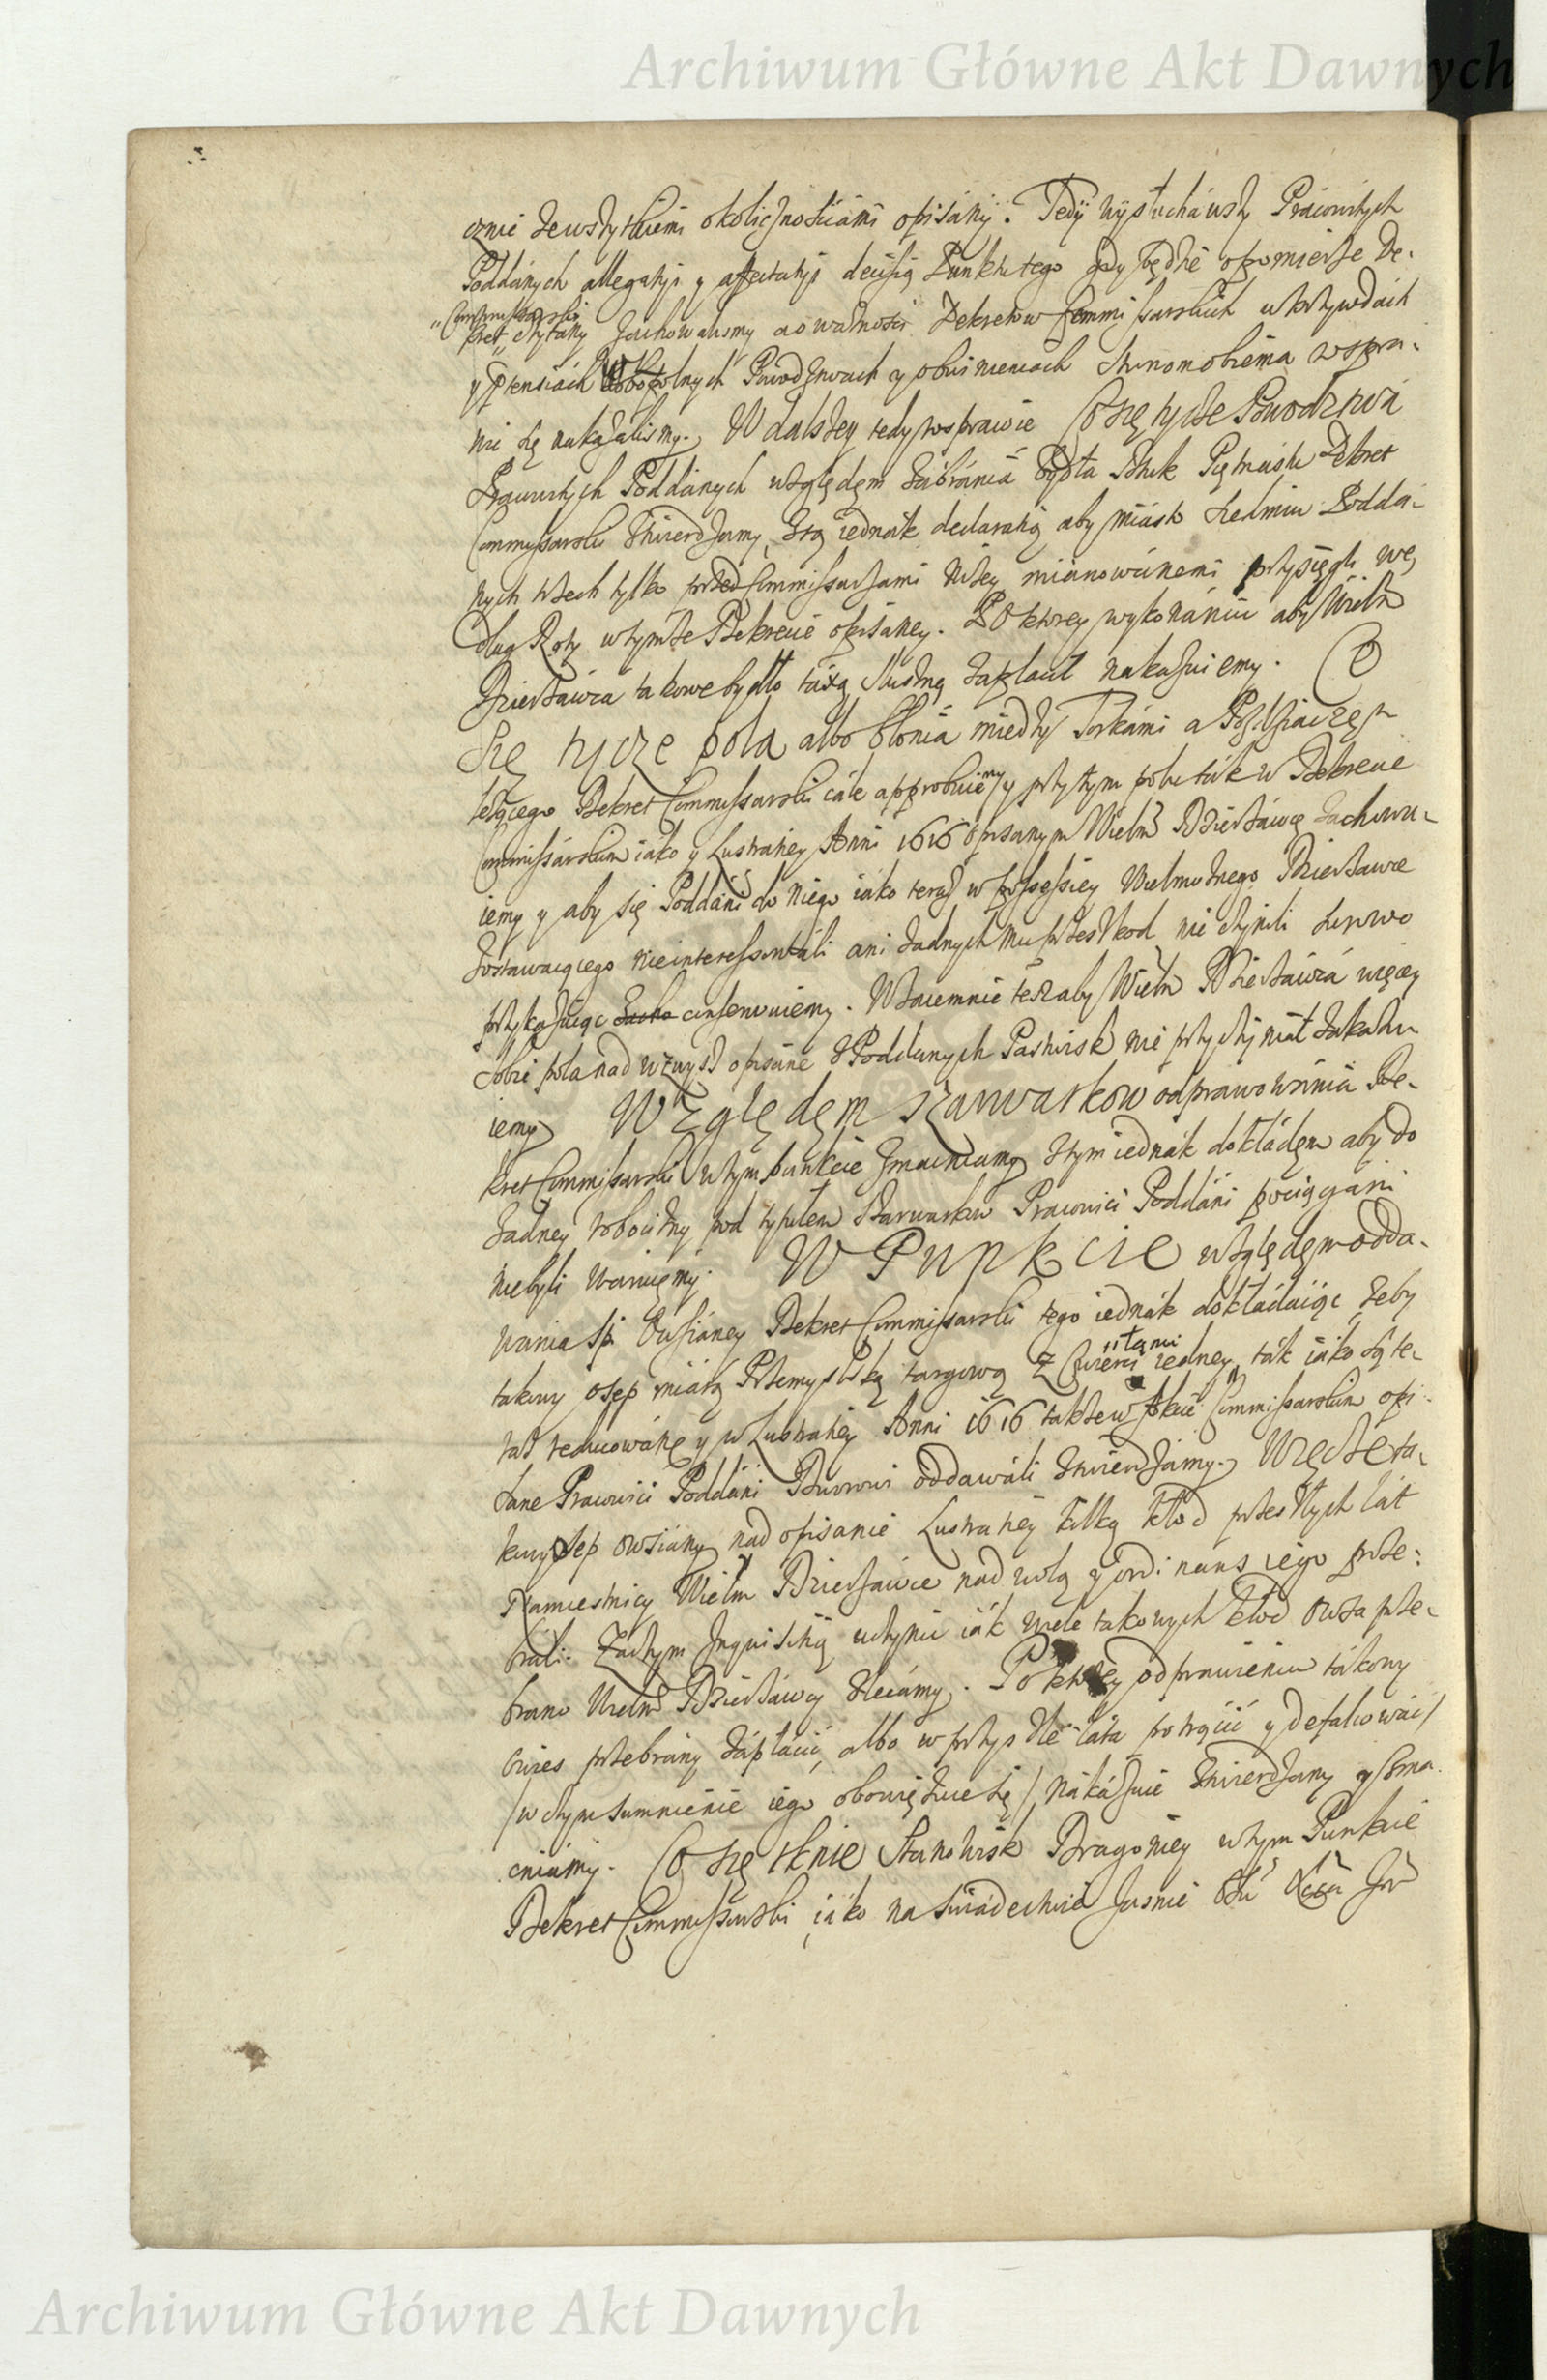 Archiwum Główne Akt Dawnych
cznie zewszytkiemi okolicznościami opisany. Tedy wysłuchawszy Pracowitych
Poddanych allegatyi y affectatyi decisią Punktu tego gdy będzie o pomierze De-
„Commissarski
kret „ czytany zachowalismy a o ważności Dekretow Commissarskich u krzywdach
y Praetensiach Powodztwach y obiisnieniach stronom obiema w spra-
wie tę nakazalismy. W dalszey tedy sprawie Co się tycze Powodztwa
Pracowitych Poddanych względem zabrania bydła sztuk Piętnaście Dekret
Commissarski ztwierdzamy, z tą iednak declaratią aby miasto siedmiu Podda-
nych trzech tylko przed Commissarzami niżey mianowanemi przysięgli we,
dług Roty w tymże Dekrecie opisaney. Po ktorey wykonaniu aby Wielm
Dzierżawca takowe bydło taxą słuszną zapłacił nakazuiemy. Co
Się tycze pola albo błonia między Torkami a Pozdziaczem
leżącego Dekret Commissarski cale approbuiemy y przy tym polu tak w Dekrecie
Commissarskim iako y Lustratiey Anni 1616 opisanym Wielm Dzierżawcę zachowu-
iemy y aby się Poddani do niego iako teraz w possessiey Wielmożnego Dzierżawce
zostawaiącego nieinteressowali ani żadnych mu przeszkod nie czynili surowo
przykazuiąc conserwuiemy. Wzaiemnie też aby Wielm Dzierżawca więcey
sobie pola nad wzwysz opisane z Poddanych Pastwisk nie przyczyniał zakazu-
iemy Względem szarwarkow odprawowania De-
kret Commissarski w tym punkcie zmacniamy z tym iednak dokładem aby do
żadney robocizny pod tytułem szarwarku Pracowici Poddani pociągani
niebyli waruięmy. W Punkcie względem odda-
wania Sp Owsianey Dekret Commissarski tego iednak dokładaiąc żeby
takowy osep miarą Przemyslską targową z Cwierci iedney „łami„ tak iako są te-
raz redukowane y w Lustratiey Anni 1616 także w Akcie Commissarskim opi-
sane Pracowici Poddani Dworowi oddawali ztwierdzamy. Wzęcze ta-
kowy osep owsiany nad opisanie Lustratiey kilką kłod przeszłych lat
Namiestnicy Wielm Dzierżawce nad wolą y ordinans iego prze-
brali. Zaczym Inquisitią uczynić iak wiele takowych kłod owsa prze-
brano Wielm Dzierżawcy zlecamy. Po ktorey odprawieniu takowy
owies przebrany zapłacić, albo w przyszłe lata potrącić y defalcować/
/w czym sumnienie iego obowięzuie się/ nakazuie ztwierdzamy y zma-
cniamy. Co się tknie Stanowisk Dragoniey w tym Punkcie
Dekret Commissarski, iako na swiadectwie Jasnie
Archiwum Główne Akt Dawnych